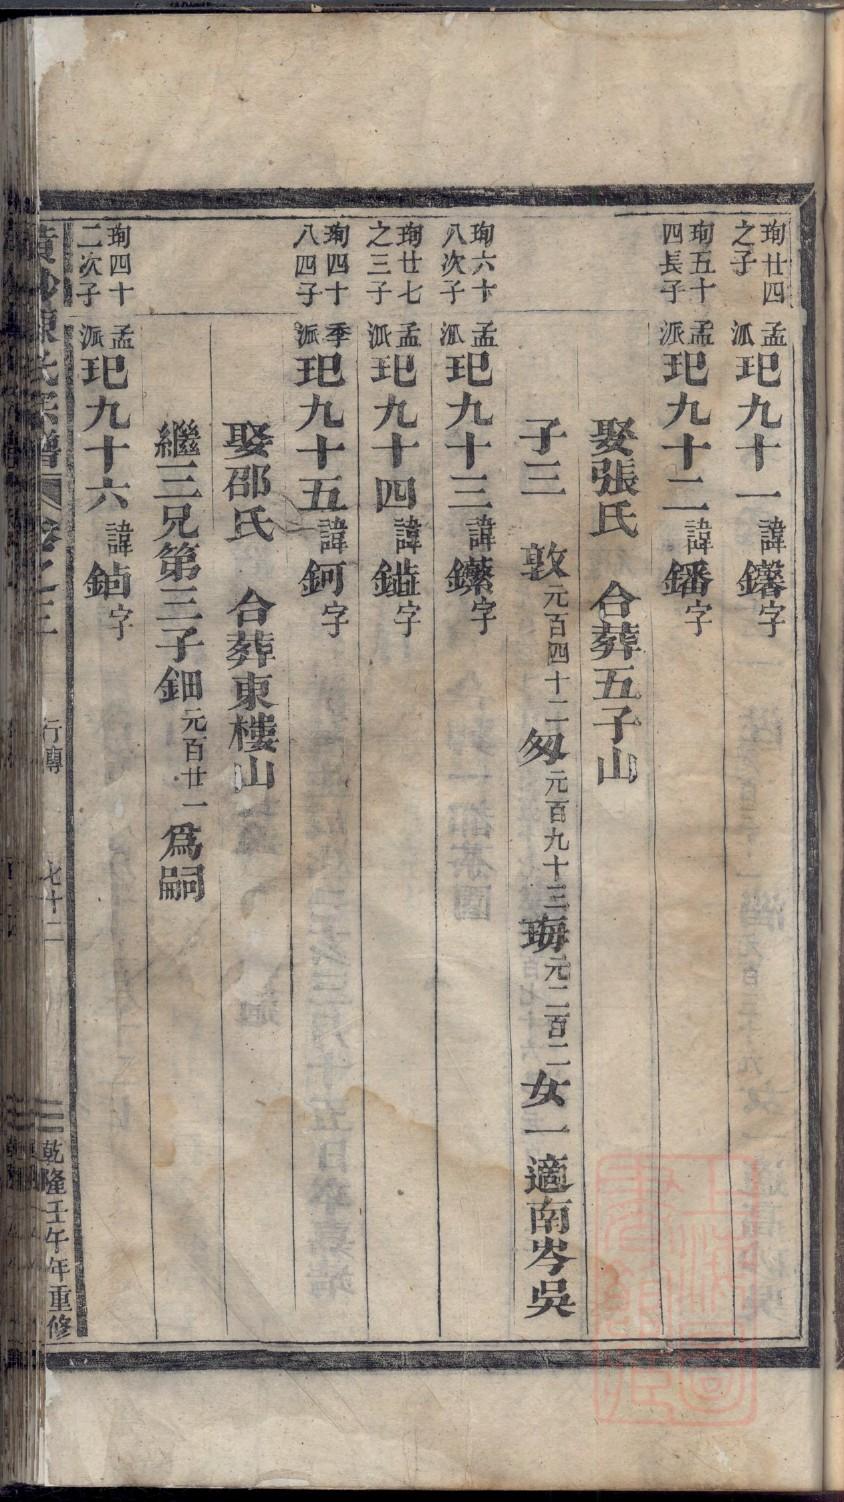 珣廿四之子 孟派 玘九十一 諱 字
珣五十四長子 孟派 玘九十二 諱鐇字
娶張氏 合葬五子山
子三 敦元百四十二 匆元百九十三 珻元二百二 女一適南岑吳
珣六十八次子 孟派 玘九十三 諱 字
珣廿七之三子 孟派 玘九十四 諱 字
珣四十八四子 季派 玘九十五 諱鈳字
娶邵氏 合葬東樓山
繼三兄第三子鈿元百廿一爲嗣
珣四十二次子 孟派 玘九十六 諱 字
陳氏宗譜 卷之三 行傳 七十二 乾隆壬午年重修
上海圖書館藏